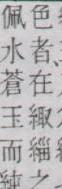 色者、在緅緇之
佩水蒼玉而純